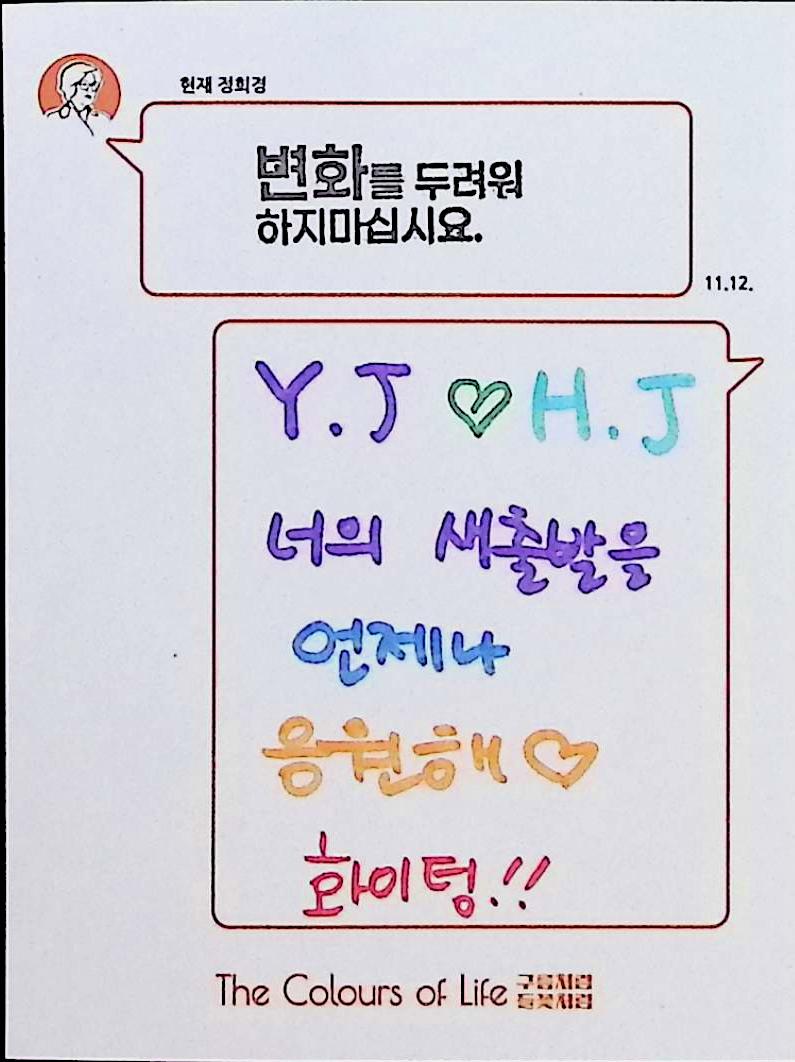 현재 정희경
변화를 두려워
하지마십시요.
11.12.
Y.J ♡ H.J
너의 새출발을
언제나
응원해 ♡
화이텅!!
The Colours of Life 구름처럼
들꽃처럼